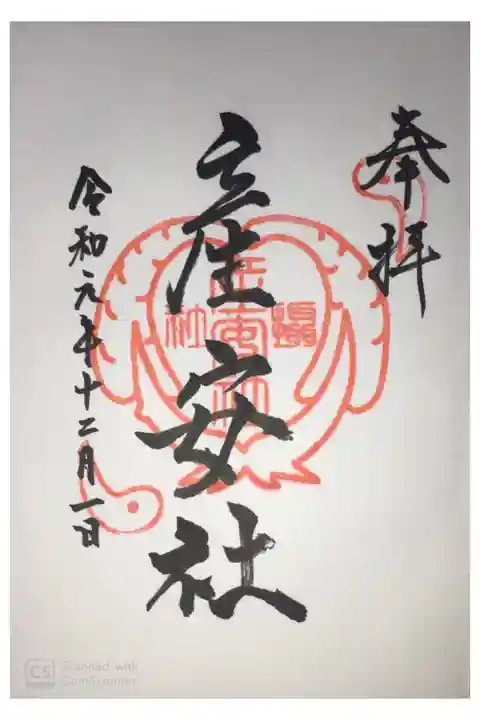 奉拝
産安社
摂
社
令和元年十二月一日
CS Scanned with
CamScanner